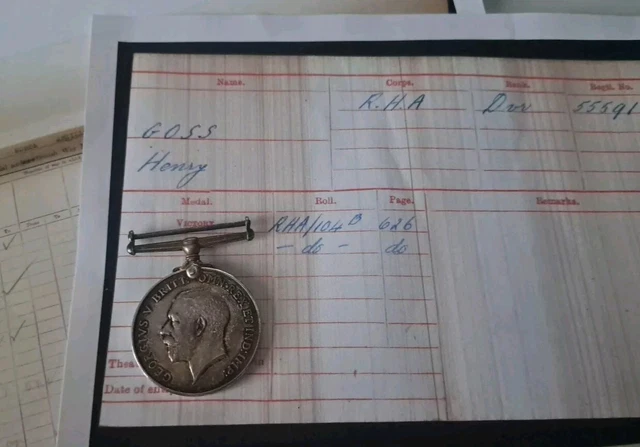 Name. Corps. Rank. Regtl. No.
R.H.A Dvr 55591
GOSS
Henry
Medal. Roll. Page. Remarks.
Victory RHA/104 B 626
- do - do
GEORGIVS V BRITT: OMN: REX ET IND: IMP:
Thea
Date of ent